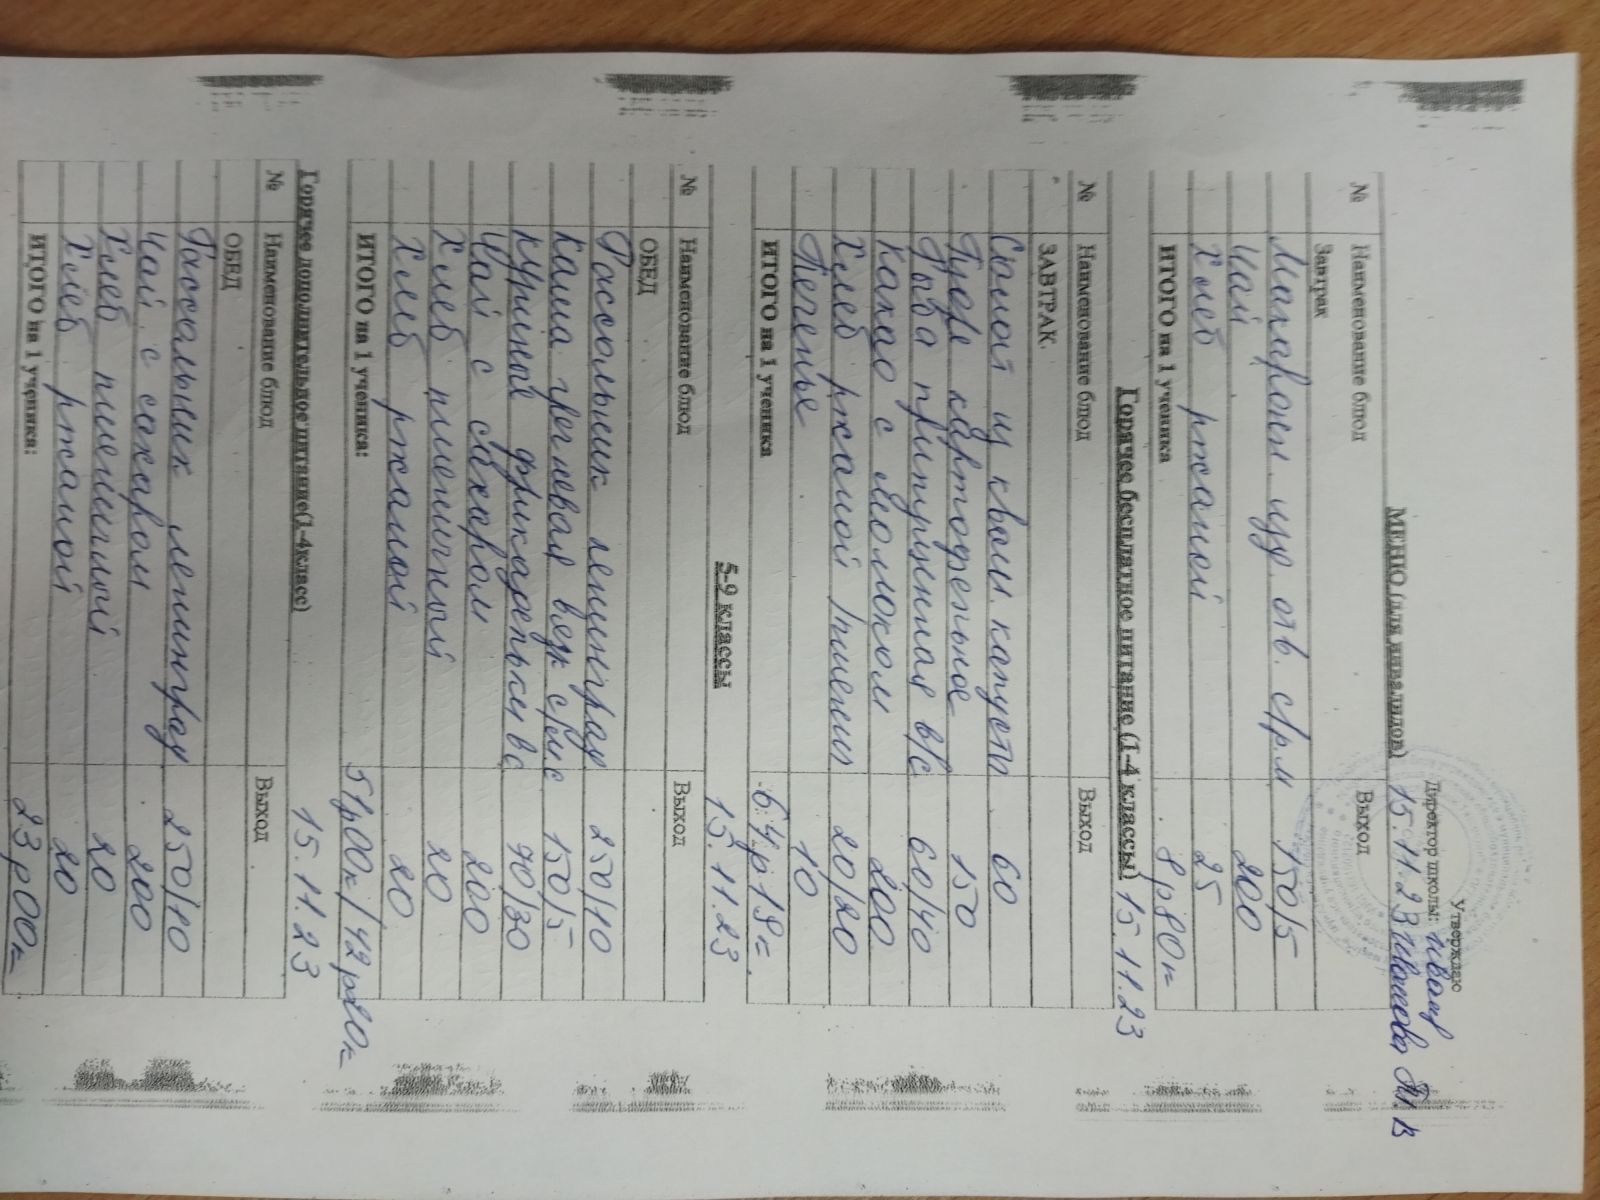 Утверждаю
Директор школы:
МЕНЮ (для инвалидов) 15.11.23
№ Наименование блюд Выход
Завтрак
Макарон. изд. отв. с/р.м 150/5
Чай 200
Хлеб ржаной 25
ИТОГО на 1 ученика 8р80к=
Горячее бесплатное питание (1-4 классы) 15.11.23
№ Наименование блюд Выход
ЗАВТРАК.
Салат из кваш. капусты 60
Пюре картофельное 150
Рыба припущенная в/с 60/40
Какао с молоком 200
Хлеб ржаной/пшенич 20/20
Печенье 10
ИТОГО на 1 ученика 64р19=
5-9 классы 15.11.23
№ Наименование блюд Выход
ОБЕД
Рассольник ленинград 250/10
Каша гречневая вязк с/мс 150/5
куриные фрикадельки вс 90/30
Чай с сахаром 200
Хлеб пшеничный 20
Хлеб ржаной 20
ИТОГО на 1 ученика: 51р00к/42р20к=
Горячее дополнительное питание(1-4класс) 15.11.23
№ Наименование блюд Выход
ОБЕД
Рассольник ленинград 250/10
Чай с сахаром 200
Хлеб пшеничный 20
Хлеб ржаной 20
ИТОГО на 1 ученика: 23р00к=